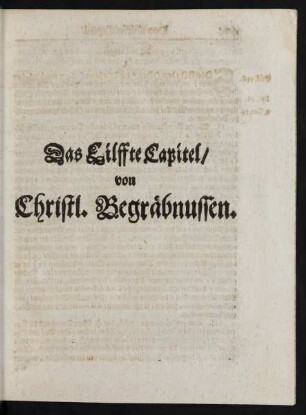 Das Eilffte Capitel/
von
Christl. Begräbnussen.